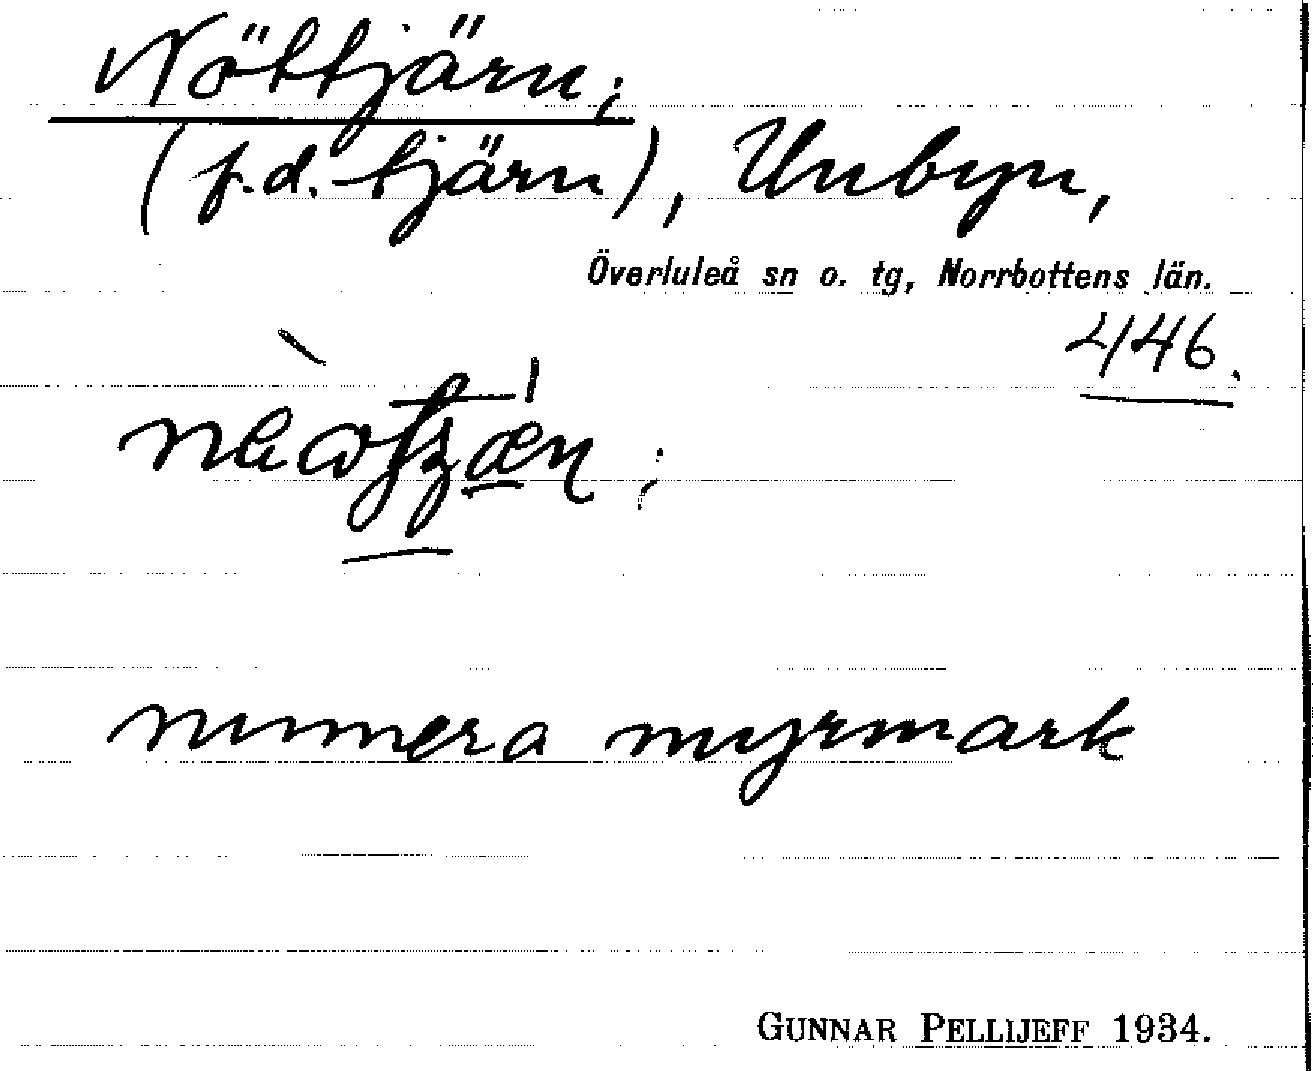 Nöttjärn;
(f.d. tjärn), Unbyn,
Överluleå sn o. tg, Norrbottens län.
446.
numera myrmark
GUNNAR PELLIJEFF 1934.